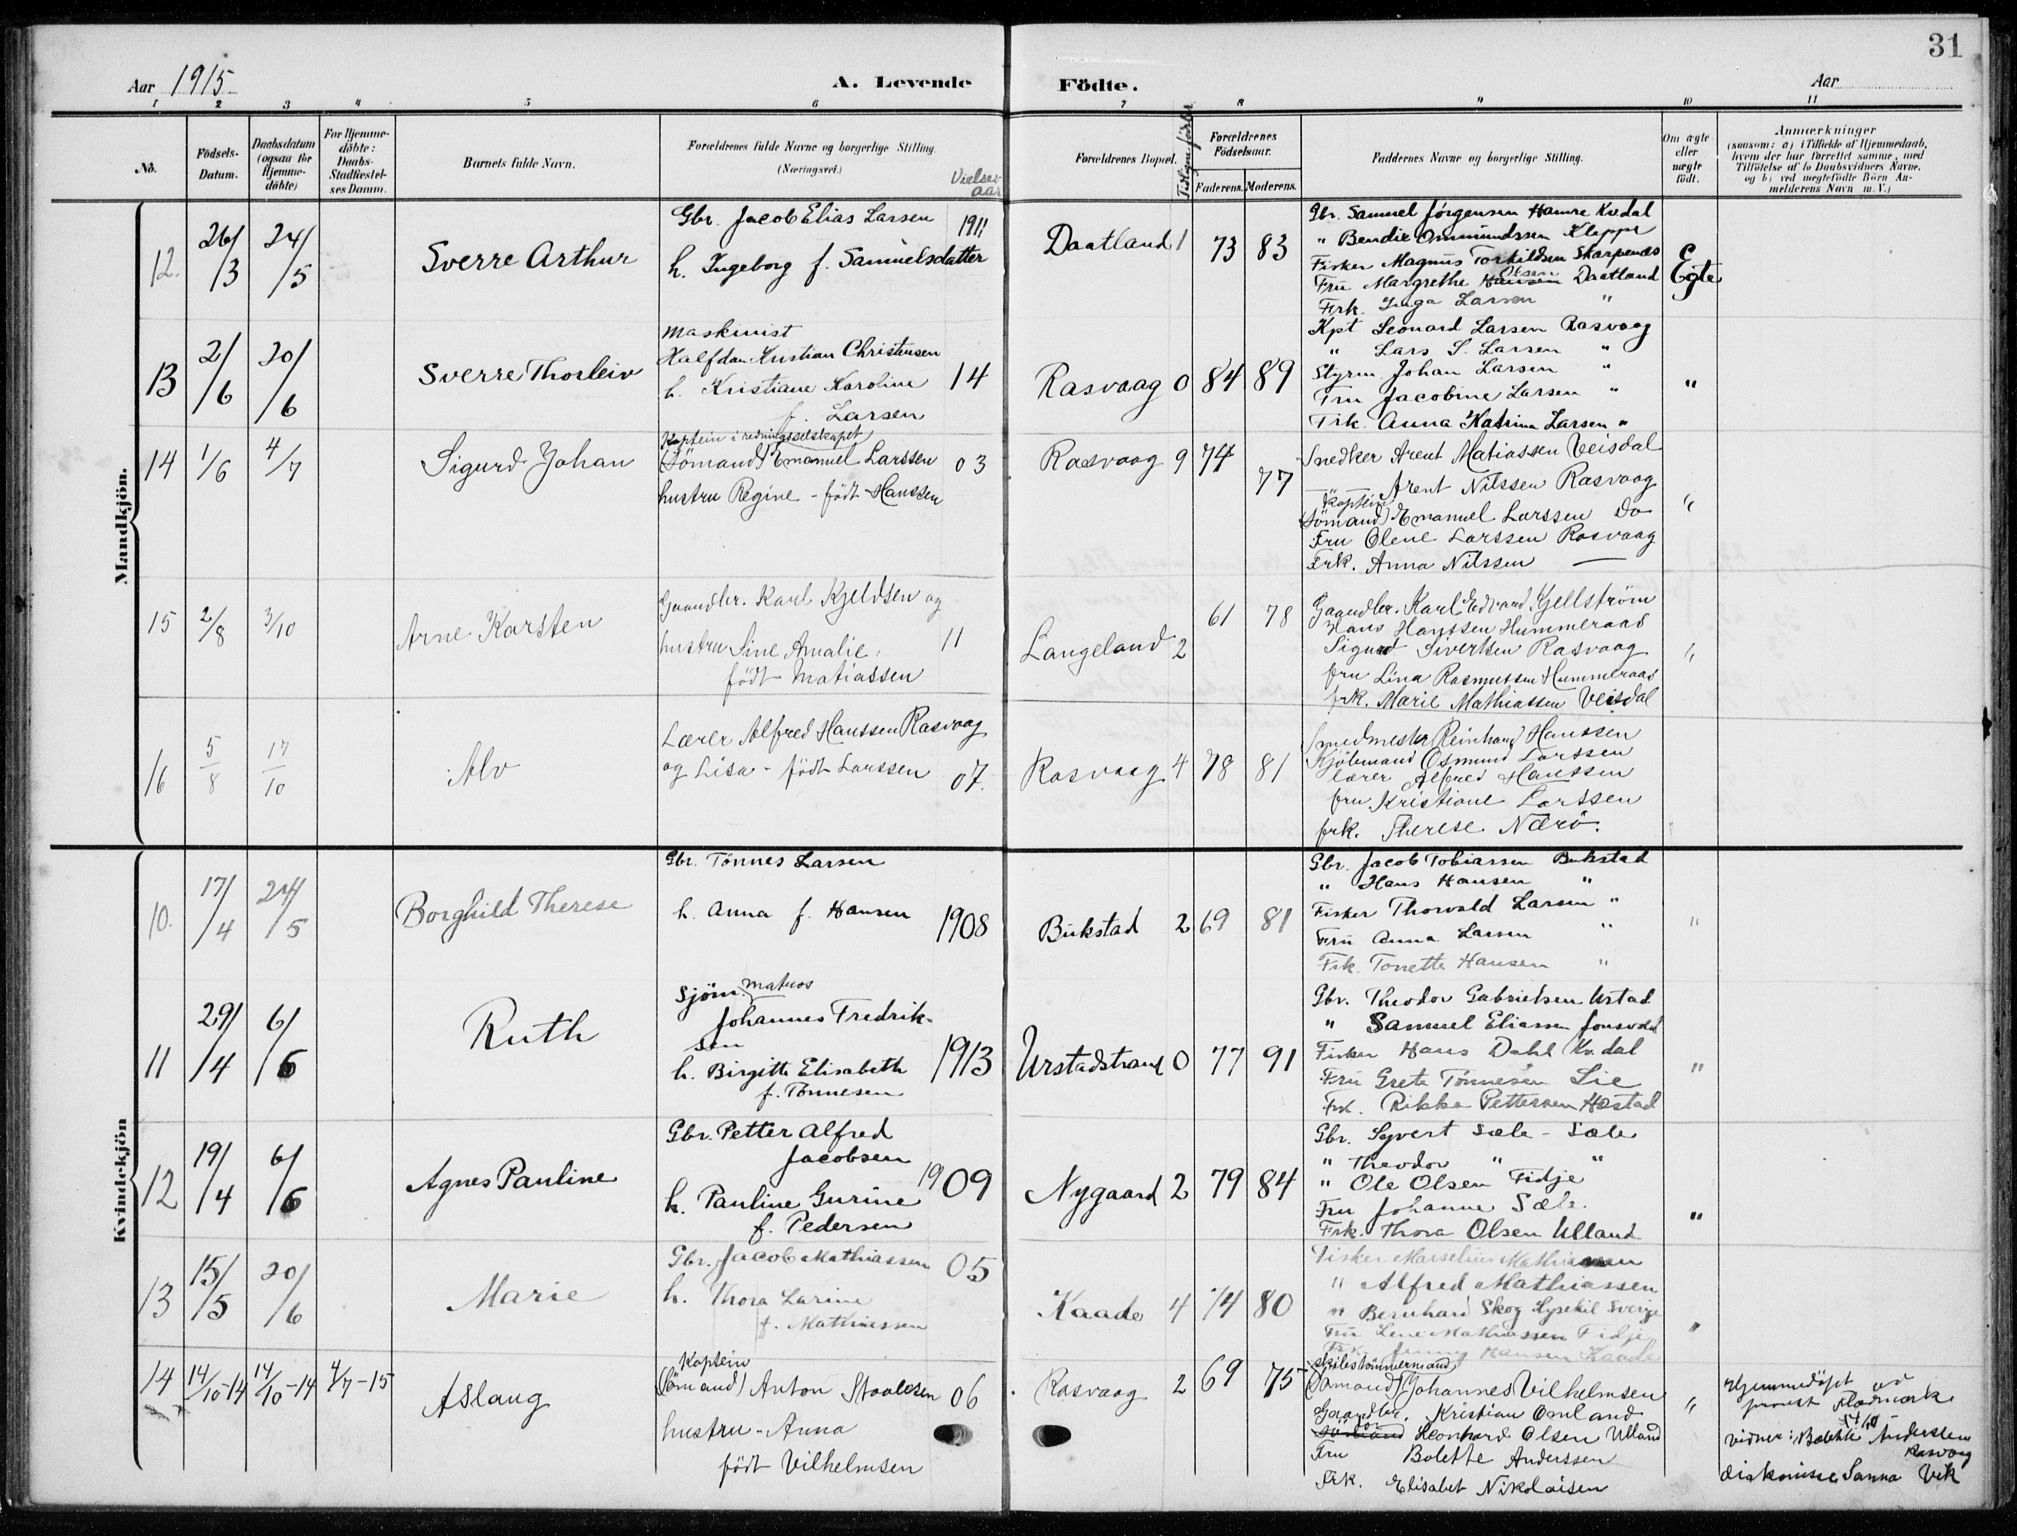 31
Aar 1915
A. Levende Födte.
Aar
1 2 3 4 5 6 7 8 9 10 11
No. Födsels-Datum. Daabsdatum (ogsaa for Hjemme-döbte) For Hjemme-döbte: Daabs-Stadfæstel-ses Datum. Barnets fulde Navn. Forældrenes fulde Navne og borgerlige Stilling. (Næringsvei.) Vielses-aar Forældrenes Bopæl. Forældrenes Födselsaar. Faderens. Moderens. Faddernes Navne og borgerlige Stilling. Om ægte eller uægte födt. Anmærkninger
(saasom: a) i Tilfælde af Hjemmedaab,
hvem der har forrettet samme, med
Tilföielse af to Daabsvidners Navne.
og b) ved uægtefödte Börn An-
melderens Navn m. V.)
Mandkjön.
12. 26/3 24/5 Sverre Arthur
Gbr. Jacob Elias Larsen 1911
h. Ingeborg f. Samuelsdatter
Daatland 1 73 83
Gbr. Samuel Jörgensen Hamre Kvedal
" Bendix Ommundssen Kleppe
Fisker Magnus Torkildsen Skarpenes
Olsen
Fru Margrethe Hansen Daatland
Frk. Inga Larsen "
Egte
13 2/6 20/6 Sverre Thorleiv
Maskinist
Halfdan Kristian Christensen
h. Kristiane Karoline 14
f. Larsen
Rasvaag 0 84 89
Kpt Leonard Larsen Rasvaag
" Lars S. Larsen "
Styrm Johan Larsen "
Fru Jacobine Larsen "
Frk. Anna Katrina Larsen "
"
14 1/6 4/7 Sigurd Johan
Kaptein i redningsselskapet
(Sömand) Emanuel Larssen 03
hustru Regine - födt Hanssen
Rasvaag 9 74 77
Snedker Arent Matiassen Veisdal
Arent Nilssen Rasvaag
Kaptein
(Sömand) Emanuel Larssen Do
Fru Olene Larssen Rasvaag
Frk. Anna Nilssen —
"
15 2/8 3/10 Arne Karsten
Gaardbr. Karl Kjeldsen og
hustru Sine Amalie, 11
födt Matiassen
Langeland 2 61 78
Gaardbr. Karl Edvard Kjellström
Hans Hanssen Hummeraas
Sigurd Sivertsen Rasvaag
fru Lina Rasmussen Hummeraas
frk. Marie Mathiassen Veisdal
"
16 5/8 17/10 Alv
Lærer Alfred Hanssen Rasvaag
og Lisa - födt Larssen 07.
Rasvaag 4 78 81
Smedmester Reinhard Hanssen
Kjöbmand Osmund Larssen
lærer Alfred Hanssen
fru Kristiane Larssen
frk. Therese Nærö.
Kvindekjön
10. 17/4 24/5 Borghild Therese
Gbr. Tönnes Larsen
h. Anna f. Hansen 1908
Bukstad 2 69 81
Gbr. Jacob Tobiassen Bukstad
" Hans Hansen "
Fisker Thorvald Larsen "
Fru Anna Larsen "
Frk. Tonette Hansen "
"
11 29/4 6/6 Ruth
Sjöm. matros
Johannes Fredrik-
sen
h. Birgitte Elisabeth 1913
f. Tönnesen
Urstadstrand 0 77 91
Gbr. Theodor Gabrielsen Urstad
" Samuel Eliassen
Fisker Hans Dahl Kvedal
Fru Grete Tönnesen Lie
Frk. Rikke Pettersen Hæstad
"
12 19/4 6/6 Agnes Pauline
Gbr. Petter Alfred
Jacobsen
h. Pauline Gurine 1909
f. Pedersen
Nygaard 2 79 84
Gbr. Syvert Sæle - Sæle
" Theodor " "
" Ole Olsen Fidje
Fru Johanne Sæle.
Frk. Thora Olsen Ulland
"
13 15/5 20/6 Marie
Gbr. Jacob Mathiassen 05
h. Thora Larine
f. Mathiassen
Kaade 4 74 80
Fisker Marselius Mathiassen
" Alfred Mathiassen
" Bernhard Skog Lysekil Sverige
Fru Lene Mathiassen Fidje
Frk. Jenny Hansen Kaade
"
14 14/10-14 14/10-14 4/7-15 Aslaug
Kaptein
(Sömand) Anton Staalesen 06
hustru - Anna
födt Vilhelmsen
Rasvaag 2 69 75
skibstömmermand
(Sömand) Johannes Vilhelmsen
Gaardbr. Kristian Omland
Leonhard Olsen Ulland
Fru Bolette Anderssen
Frk. Elisabet Nikolaisen
"
Hjemmedöpt av
provst Flødmark
vidner: Bolette Anderssen
Rasvaag
diakonisse Sanna Vik